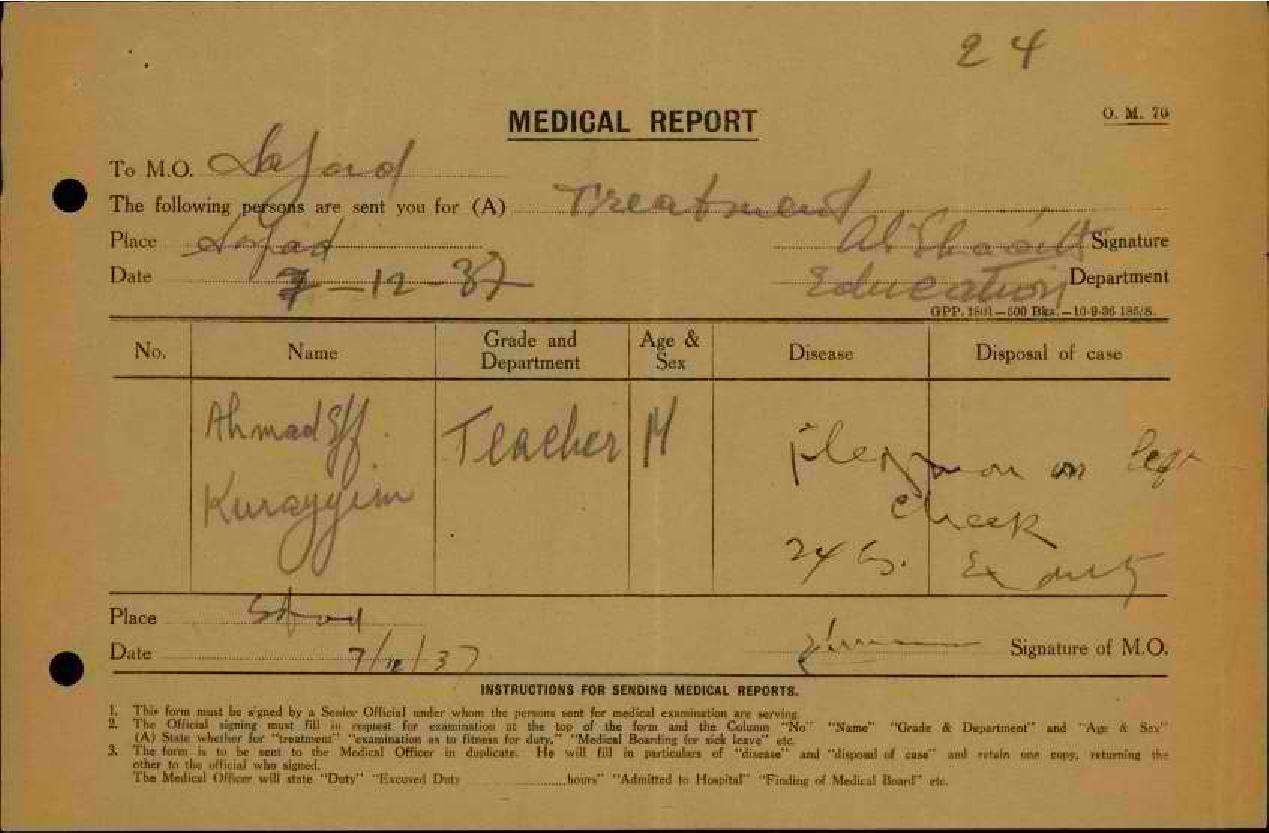 24
MEDICAL REPORT
O. M. 70
To M.O. Safad
The following persons are sent you for (A) Treatment
Place Safad Signature
Date 7-12-37 Education Department
GPP. 1801—500 Bks.—10-9-36
No. Name Grade and Department Age & Sex Disease Disposal of case
Ahmad Eff. Teacher M on left
Kurayyim cheek
24 Ex duty
Place Safad
Date 7/12/37 Signature of M.O.
INSTRUCTIONS FOR SENDING MEDICAL REPORTS.
1. This form must be signed by a Senior Official under whom the persons sent for medical examination are serving.
2. The Official signing must fill in request for examination at the top of the form and the Column "No" "Name" "Grade & Department" and "Age & Sex"
(A) State whether for "treatment" "examination as to fitness for duty," "Medical Boarding for sick leave" etc.
3. The form is to be sent to the Medical Officer in duplicate. He will fill in particulars of "disease" and "disposal of case" and retain one copy, returning the
other to the official who signed.
The Medical Officer will state "Duty" "Excused Duty ..............hours" "Admitted to Hospital" "Finding of Medical Board" etc.